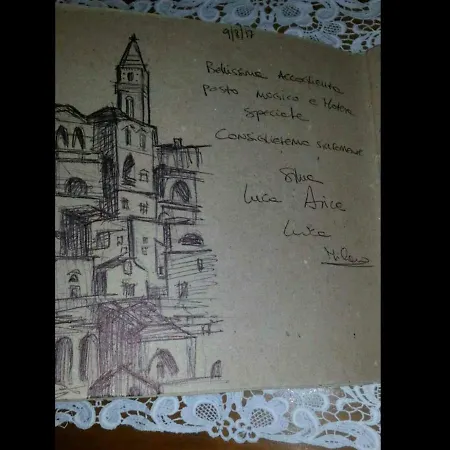 9/8/17
Bellissima Accoglienza
posto magico e Matera
speciale
Consiglieremo sicuramente
Luca Anna
Luca
Milano